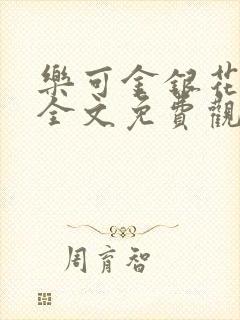 樂可金銀花
全文免費觀
周育智